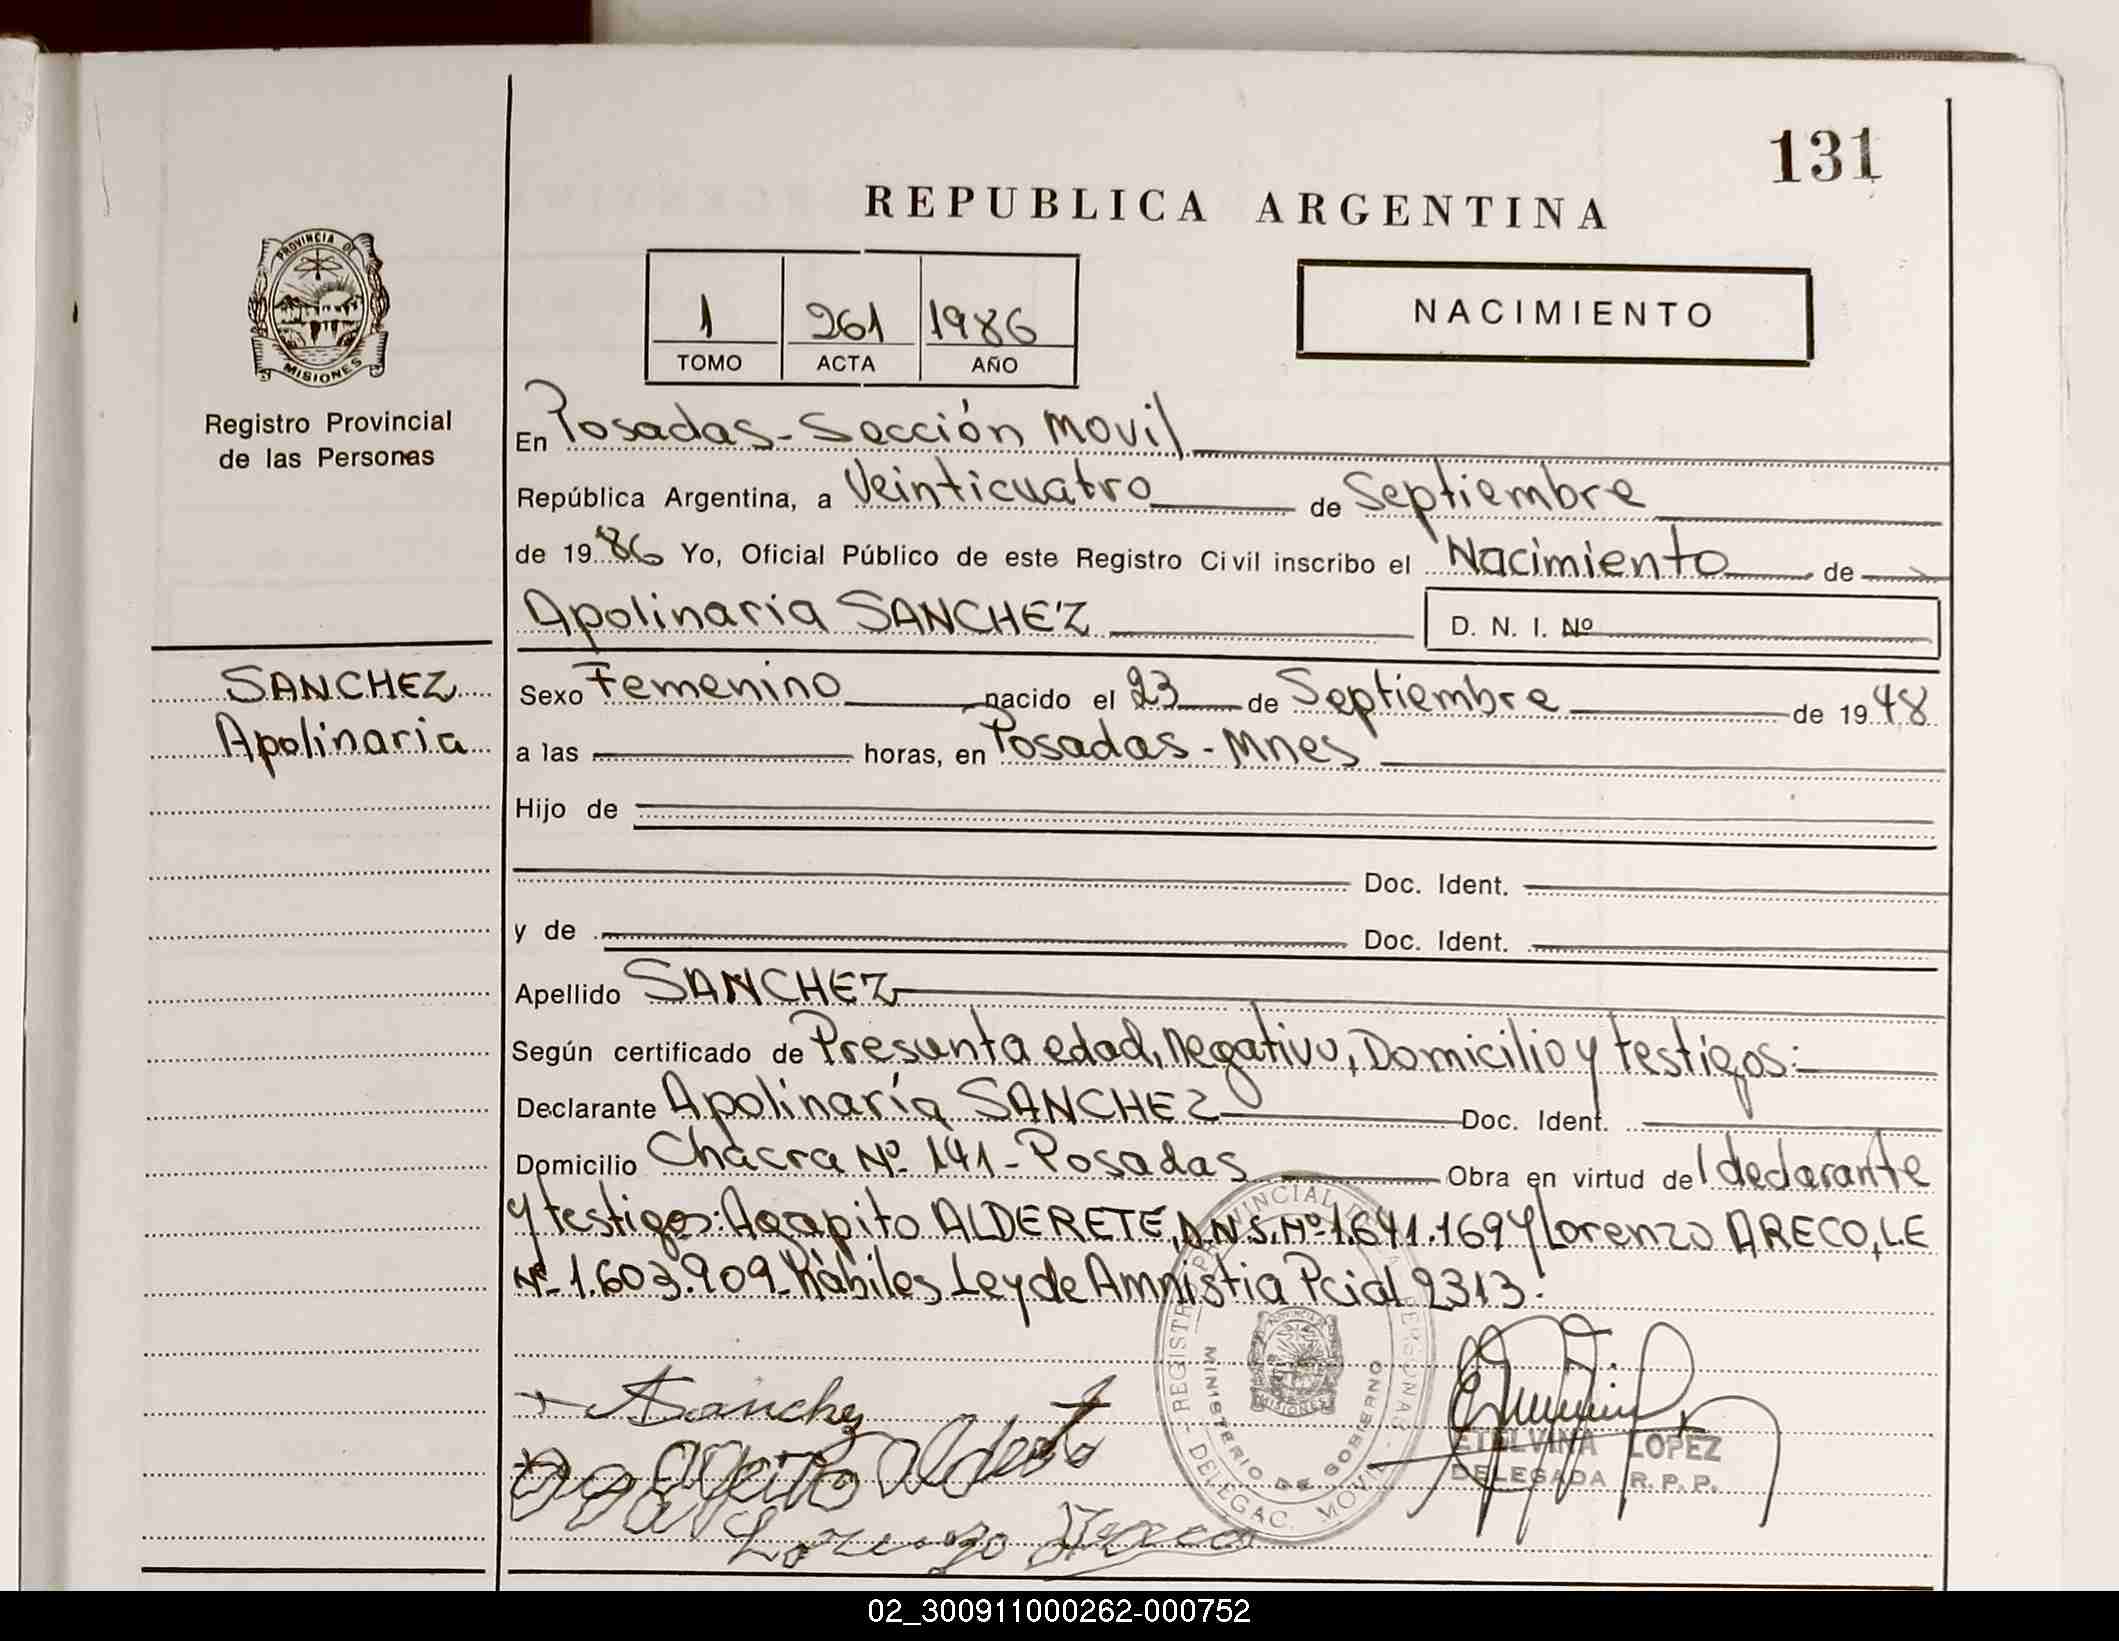 131
REPUBLICA ARGENTINA
PROVINCIA DE
MISIONES
Registro Provincial
de las Personas
1 261 1986
TOMO ACTA AÑO
NACIMIENTO
En Posadas - Sección Movil
República Argentina, a Veinticuatro de Septiembre
de 1986 Yo, Oficial Público de este Registro Civil inscribo el Nacimiento de
Apolinaria SANCHEZ D. N. I. Nº
SANCHEZ
Apolinaria
Sexo Femenino nacido el 23 de Septiembre de 1948
a las horas, en Posadas - Mnes
Hijo de
Doc. Ident.
y de Doc. Ident.
Apellido SANCHEZ
Según certificado de Presunta edad, Negativo, Domicilio y testigos:
Declarante Apolinaria SANCHEZ Doc. Ident.
Domicilio Chacra Nº 141 - Posadas Obra en virtud del declarante
y testigos: Agapito ALDERETE, D.N.I. Nº 1.641.169 y Lorenzo ARECO, L.E
Nº 1.603.909 - Hábiles Ley de Amnistia Pcial 2313.
REGISTRO PROVINCIAL DE LAS PERSONAS
MINISTERIO DE GOBIERNO
MISIONES
- DELEGAC. MOVIL -
A Sanchez
Agapito Alderete
Lorenzo Areco
ETELVINA LOPEZ
DELEGADA R.P.P.
02_300911000262-000752